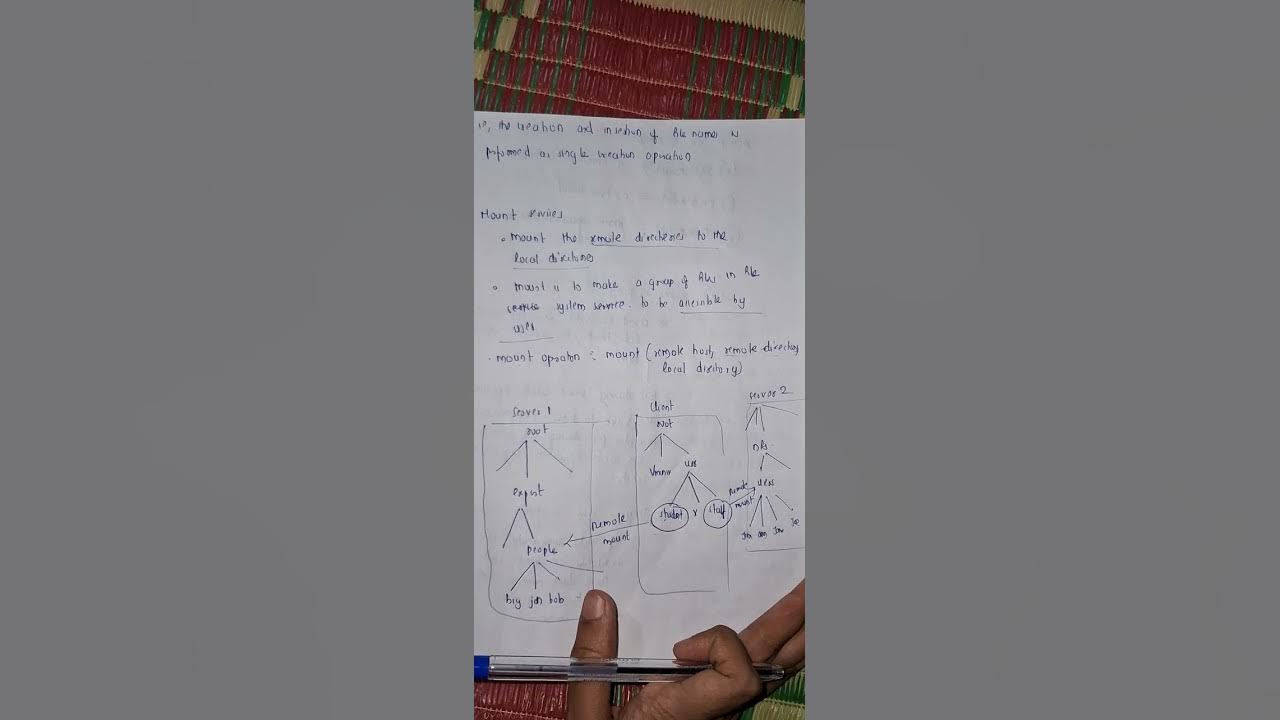 ie, the creation and insertion of file names is
performed as single creation operation
Mount services
• mount the remote directories to the
local directories
• mount is to make a group of files in file
system service. to be accessible by
user
• mount opration : mount (remote host, remote-directory
local directory)
server 1
client
server 2
root
root
export
Vmnix
usr
nfs
users
student
x
staff
remote
mount
remote
mount
people
big jon bob
Jim ann Jane Joe